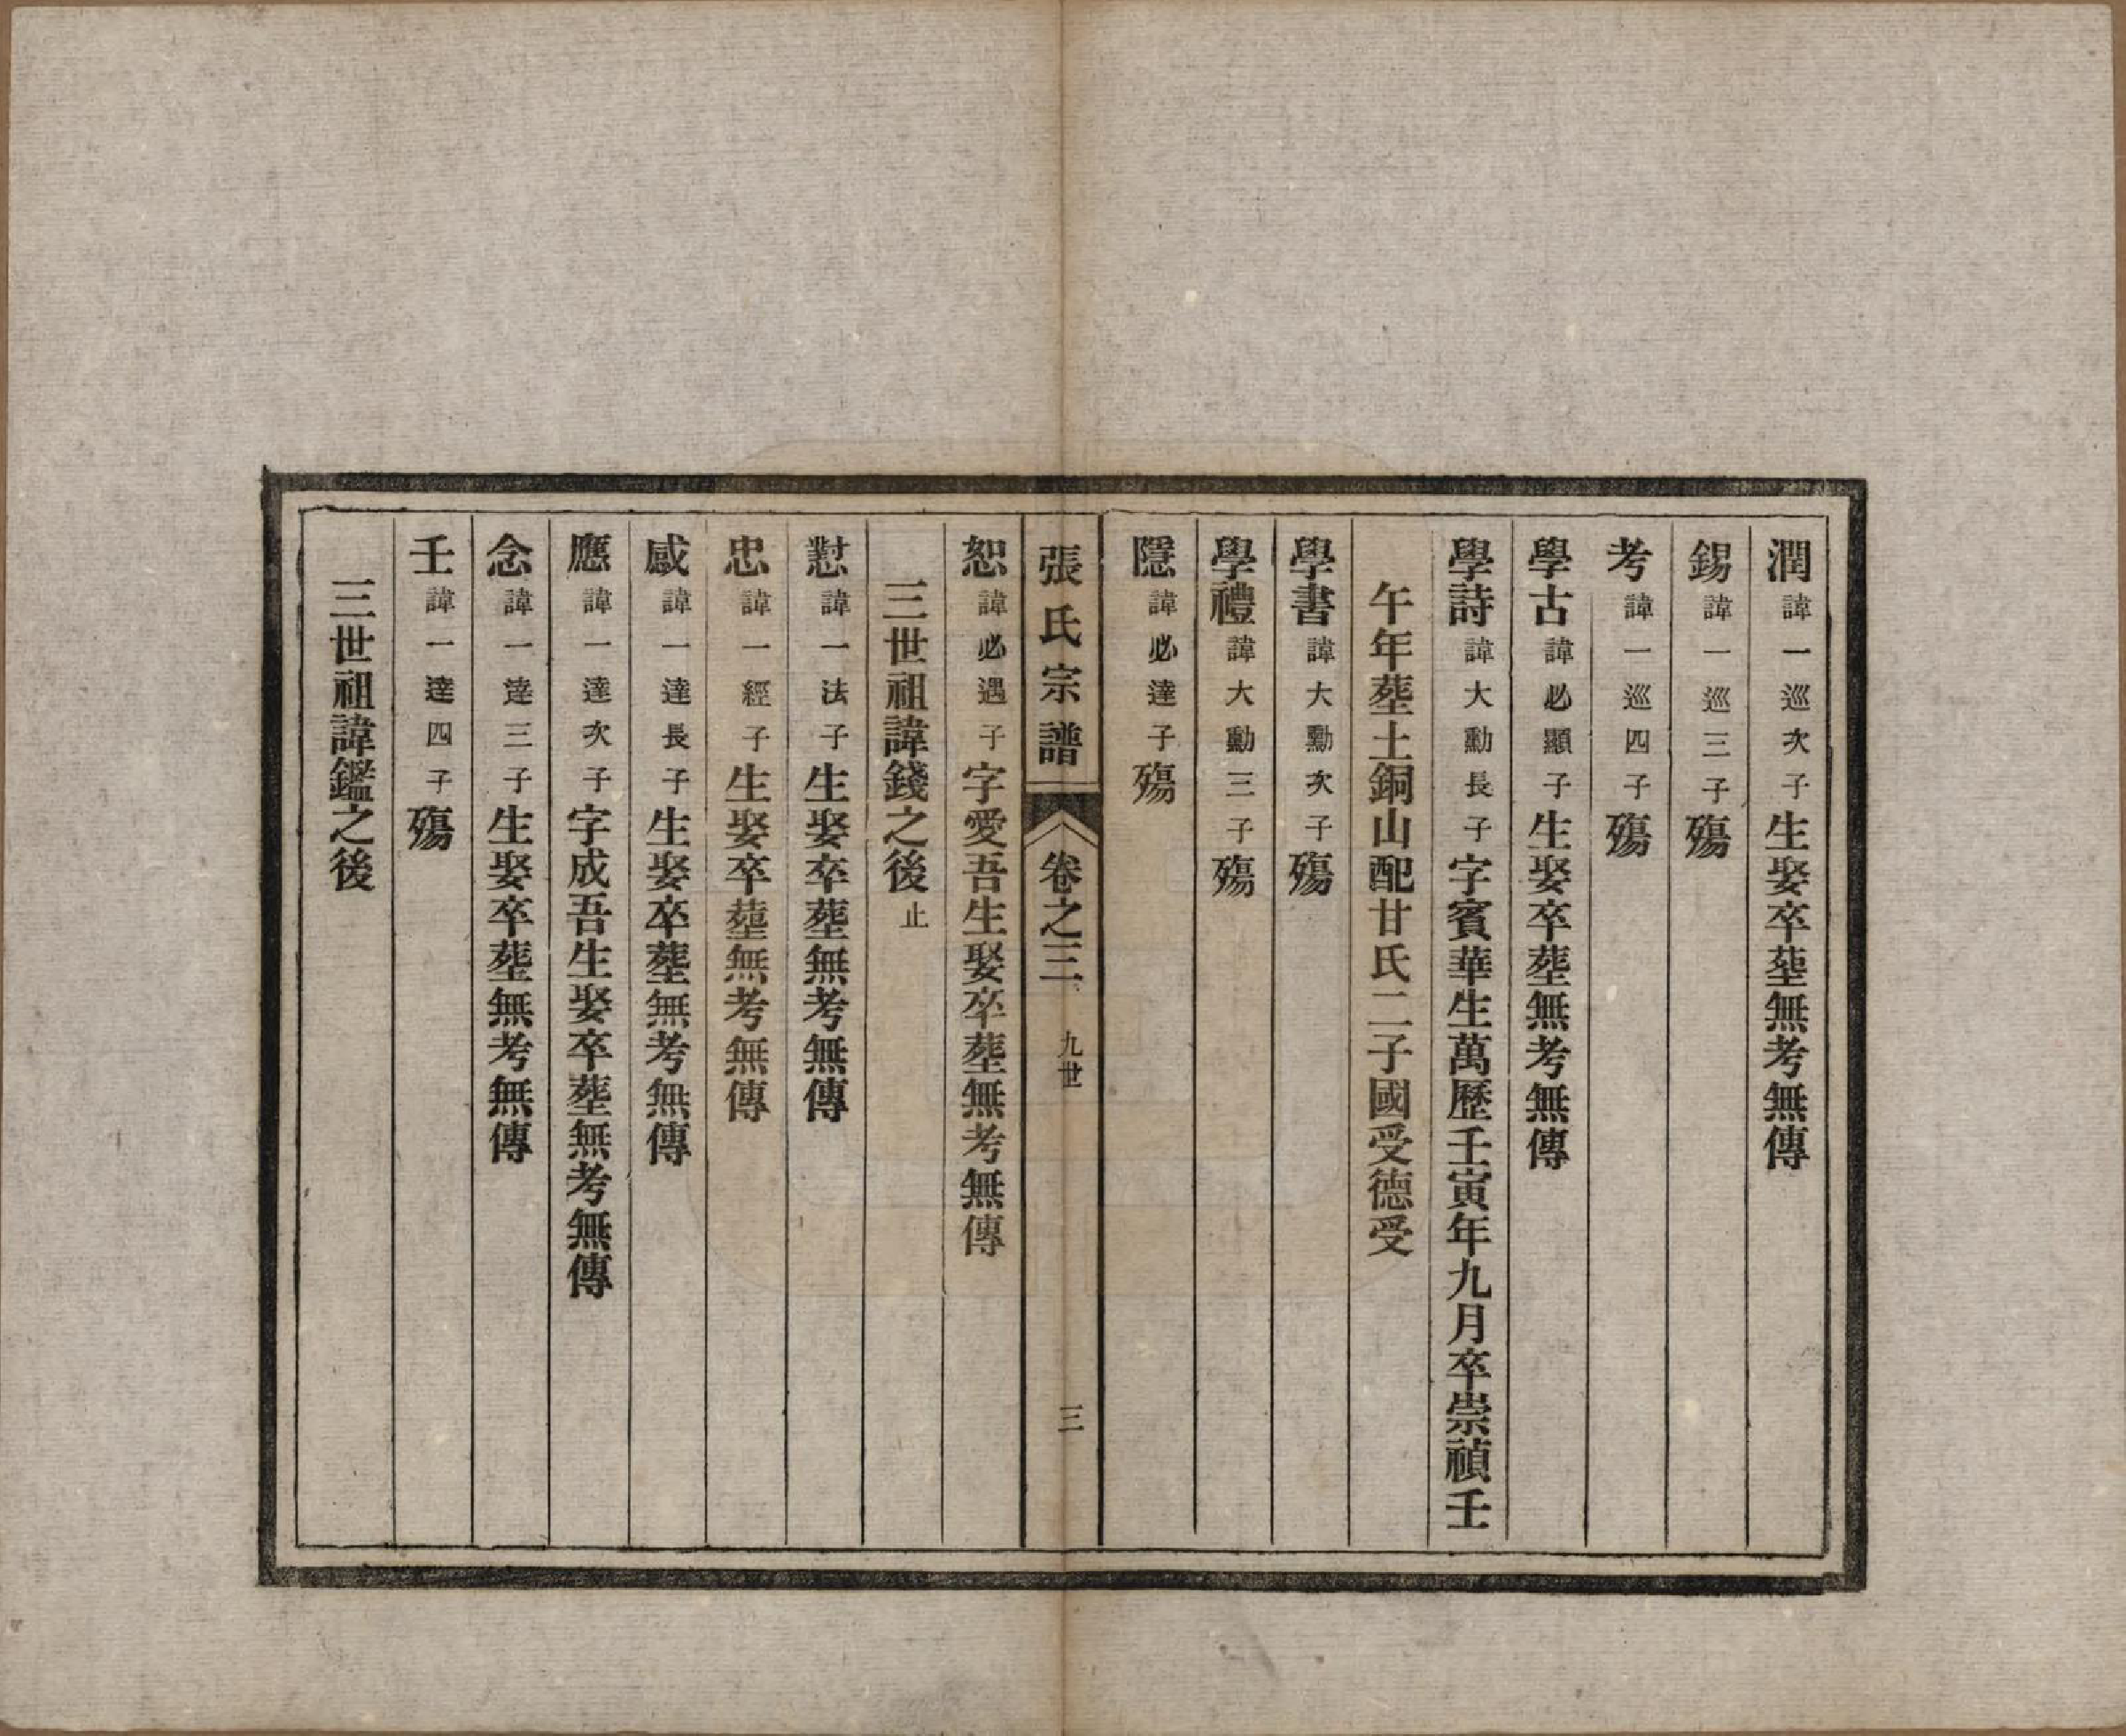 潤諱一巡次子生娶卒塟無考無傳
錫諱一巡三子殤
考諱一巡四子殤
學古諱必顯子生娶卒塟無考無傳
學詩諱大勳長子字賓華生萬歷壬寅年九月卒崇禎壬
午年塟土銅山配甘氏二子國受德受
學書諱大勳次子殤
學禮諱大勳三子殤
隱諱必達子殤
張氏宗譜 卷之三 九世 三
恕諱必遇子字愛吾生娶卒塟無考無傳
三世祖諱錢之後止
懟諱一法子生娶卒塟無考無傳
忠諱一經子生娶卒塟無考無傳
感諱一達長子生娶卒塟無考無傳
應諱一達次子字成吾生娶卒塟無考無傳
念諱一達三子生娶卒塟無考無傳
壬諱一達四子殤
三世祖諱鑑之後